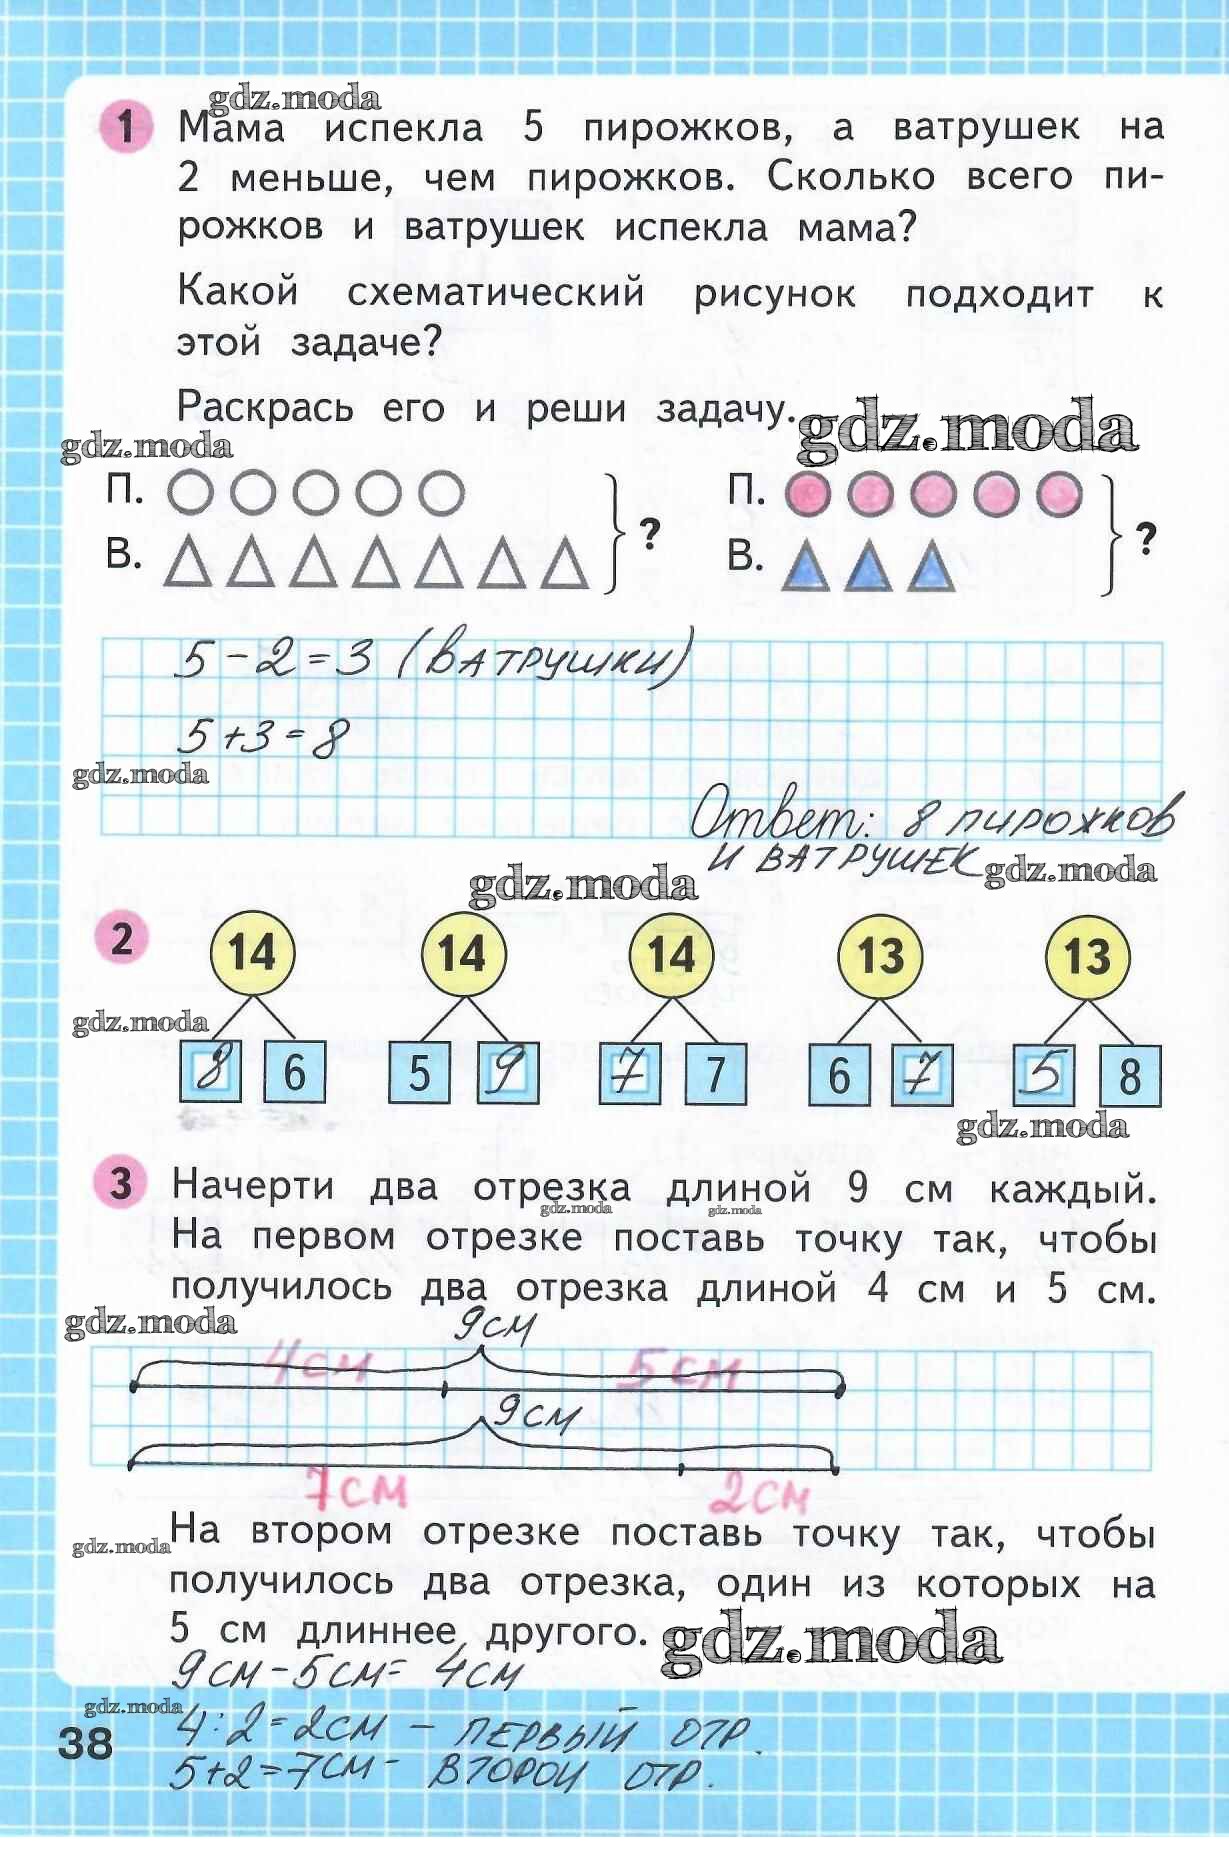 gdz.moda
1 Мама испекла 5 пирожков, а ватрушек на
2 меньше, чем пирожков. Сколько всего пи-
рожков и ватрушек испекла мама?
Какой схематический рисунок подходит к
этой задаче?
Раскрась его и реши задачу.
gdz.moda
gdz.moda
П. } ? П. } ?
В. В.
5 - 2 = 3 (ватрушки)
5 + 3 = 8
gdz.moda
Ответ: 8 пирожков
и ватрушек
gdz.moda
gdz.moda
2 14 14 14 13 13
gdz.moda
8 6 5 9 7 7 6 7 5 8
gdz.moda
3 Начерти два отрезка длиной 9 см каждый.
gdz.moda gdz.moda
На первом отрезке поставь точку так, чтобы
получилось два отрезка длиной 4 см и 5 см.
gdz.moda
9 см
4 см 5 см
9 см
7 см 2 см
На втором отрезке поставь точку так, чтобы
gdz.moda
получилось два отрезка, один из которых на
5 см длиннее другого.
gdz.moda
9 см - 5 см = 4 см
gdz.moda
4 : 2 = 2 см - первый отр.
38
5 + 2 = 7 см - второй отр.